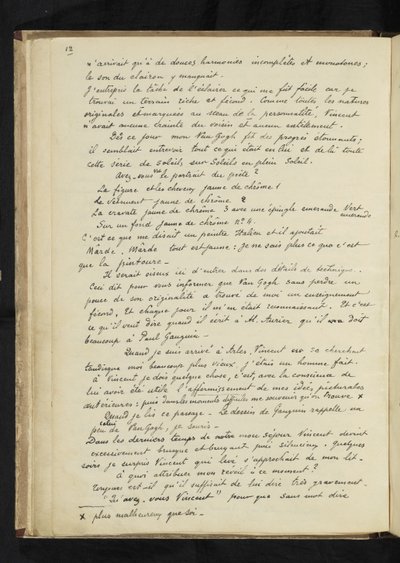 12
n'arrivait qu'à de douces harmonies incomplètes et monotones;
le son du clairon y manquait.
J'entrepris la tâche de l'éclairer ce qui me fut facile car je
trouvai un terrain riche et fécond. Comme toutes les natures
originales et marquées au sceau de la personnalité, Vincent
n'avait aucune crainte du voisin et aucun entêtement.
Dès ce jour mon Van Gogh fit des progrès étonnants;
il semblait entrevoir tout ce qui était en lui et de là toute
cette série de soleils, sur soleils en plein soleil.
Avez-vous vu le portrait du poète?
La figure et les cheveux jaune de chrôme 1
Le vêtement jaune de chrôme 2
La cravate jaune de chrôme 3 avec une épingle émeraude Vert
émeraude
Sur un fond jaune de chrôme no 4.
C'est ce que me disait un peintre Italien et il ajoutait
Mârde, Mârde tout est jaune: Je ne sais plus ce que c'est
que la pintoure —
Il serait oiseux ici d'entrer dans des détails de technique.
Ceci dit pour vous informer que Van Gogh sans perdre un
pouce de son originalité a trouvé de moi un enseignement
fécond. Et chaque jour il m'en était reconnaissant. Et c'est
ce qu'il veut dire quand il écrit à M. Aurier qu'il doit
beaucoup à Paul Gauguin —
Quand je suis arrivé à Arles, Vincent se cherchait
tandisque moi beaucoup plus vieux, j'étais un homme fait.
à Vincent je dois quelque chose, c'est, avec la conscience de
lui avoir été utile l'affermissement de mes idées picturales
antérieures: puis dans les moments difficiles me souvenir qu'on trouve x
Quand je lis ce passage — Le dessin de Gauguin rappelle un
peu celui de Van Gogh, je souris —
Dans les derniers temps de mon séjour Vincent devint
excessivement brusque et bruyant, puis silencieux. Quelques
soirs je surpris Vincent qui levé s'approchait de mon lit.
à quoi attribuer mon réveil à ce moment?
Toujours est-il qu'il suffisait de lui dire très gravement.
"Qu'avez-vous Vincent" pour que sans mot dire
x plus malheureux que soi —